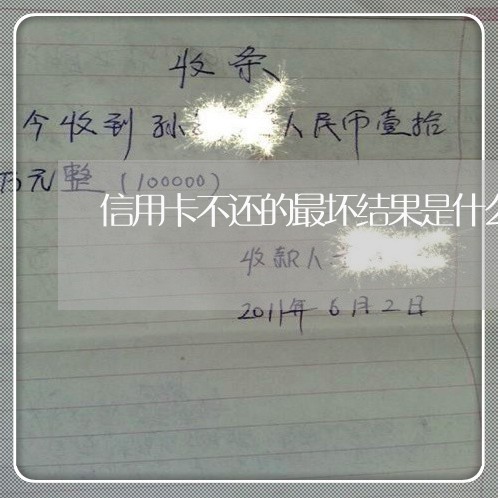 收条
今收到孙 人民币壹拾
万元整(100000)
信用卡不还的最坏结果是什么
收款人
2011年6月2日